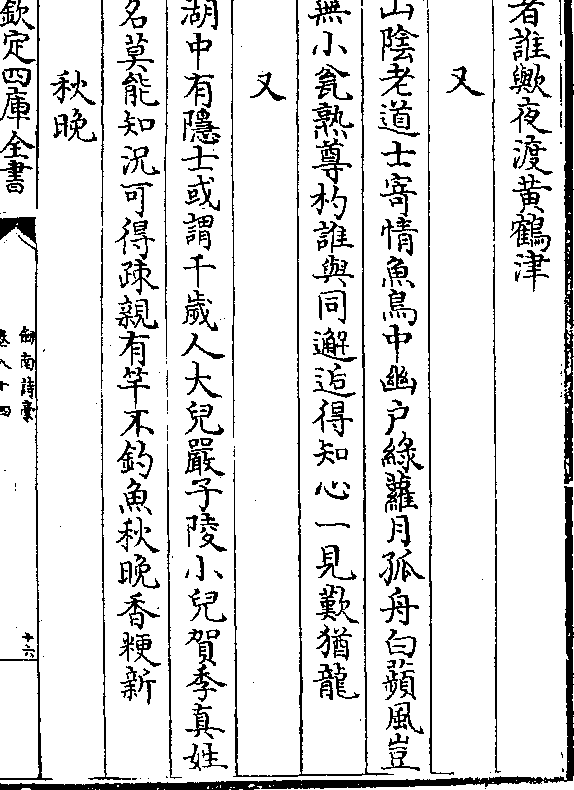 者誰歟夜渡黃鶴津
又
山陰老道士寄情魚鳥中幽戶綠蘿月孤舟白蘋風豈
無小瓮熟尊杓誰與同邂逅得知心一見歎猶龍
又
湖中有隱士或謂千歲人大兒嚴子陵小兒賀季真姓
名莫能知況可得疎親有竿不釣魚秋晚香粳新
秋晚
欽定四庫全書
劍南詩稾
卷八十四
十六